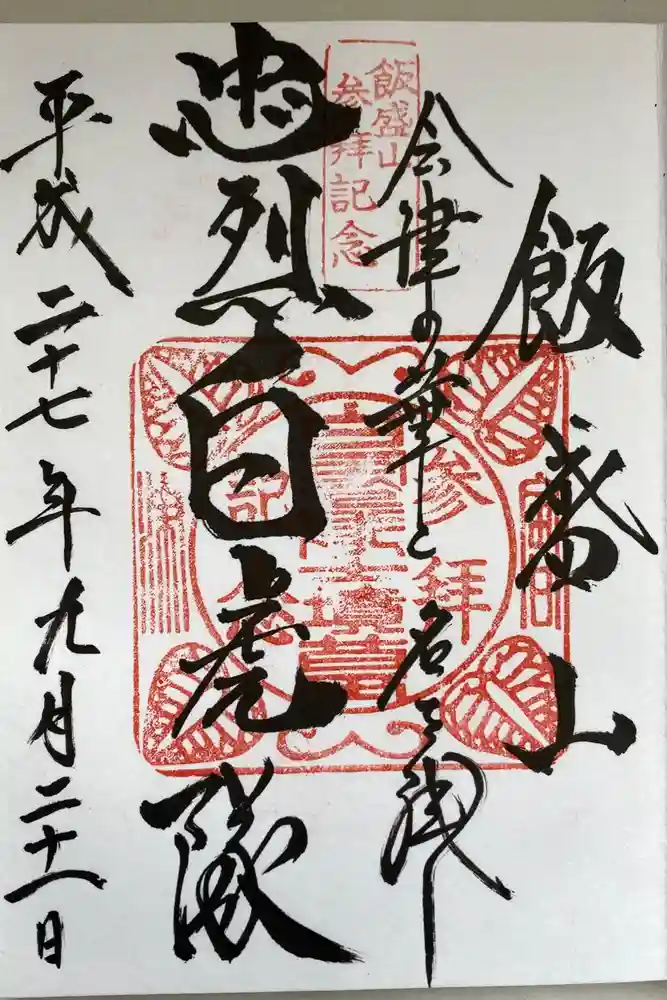 飯盛山
会津の華と名を残し
飯盛山
参拝記念
忠烈白虎隊
参拝
記念
平成二十七年九月二十一日